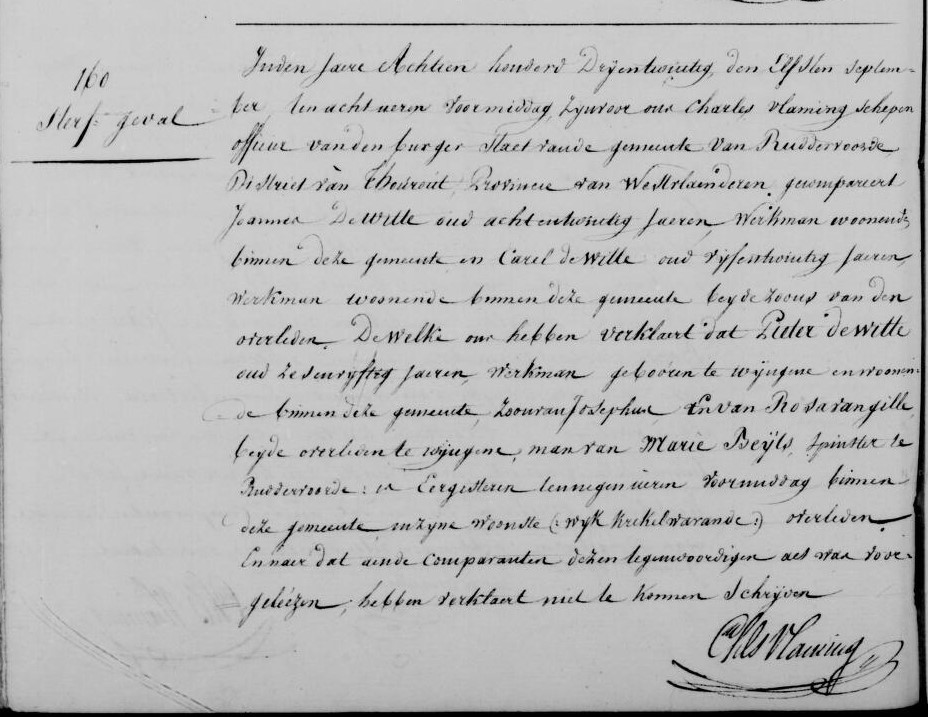 160
Sterf geval
In den jaere Achtien honderd Dryentwintig, den Elfsten Septem-
ber, ten acht ueren voormiddag, Zyn voor ons Charles Vlaming Schepen
officier van den burger Staet van de gemeente van Ruddervoorde,
District van Thourout, Provincie van Westvlaenderen, gecompareert
Joannes De Witte oud achtentwintig Jaeren, Werkman woonende
binnen deze gemeente en Carel de Witte oud vyfentwintig Jaeren,
werkman woonende binnen deze gemeente beyde Zoons van den
overleden. De Welke ons hebben verklaert dat Pieter de Witte
oud zesenvyftig Jaeren, werkman gebooren te wyngene en woonen-
de binnen deze gemeente, Zoon van Josephus en van Rosa van gille,
beyde overleden te wyngene, man van Marie Beyls, spinster te
Ruddervoorde: is Eergisteren ten negen ueren Voormiddag binnen
deze gemeente in zyne woonste (: wyk Krekelwarande:) overleden
En naer dat aende comparanten dezen tegenwoordigen act was voor-
geleézen, hebben verklaert niet te konnen Schryven
Chls Vlaming